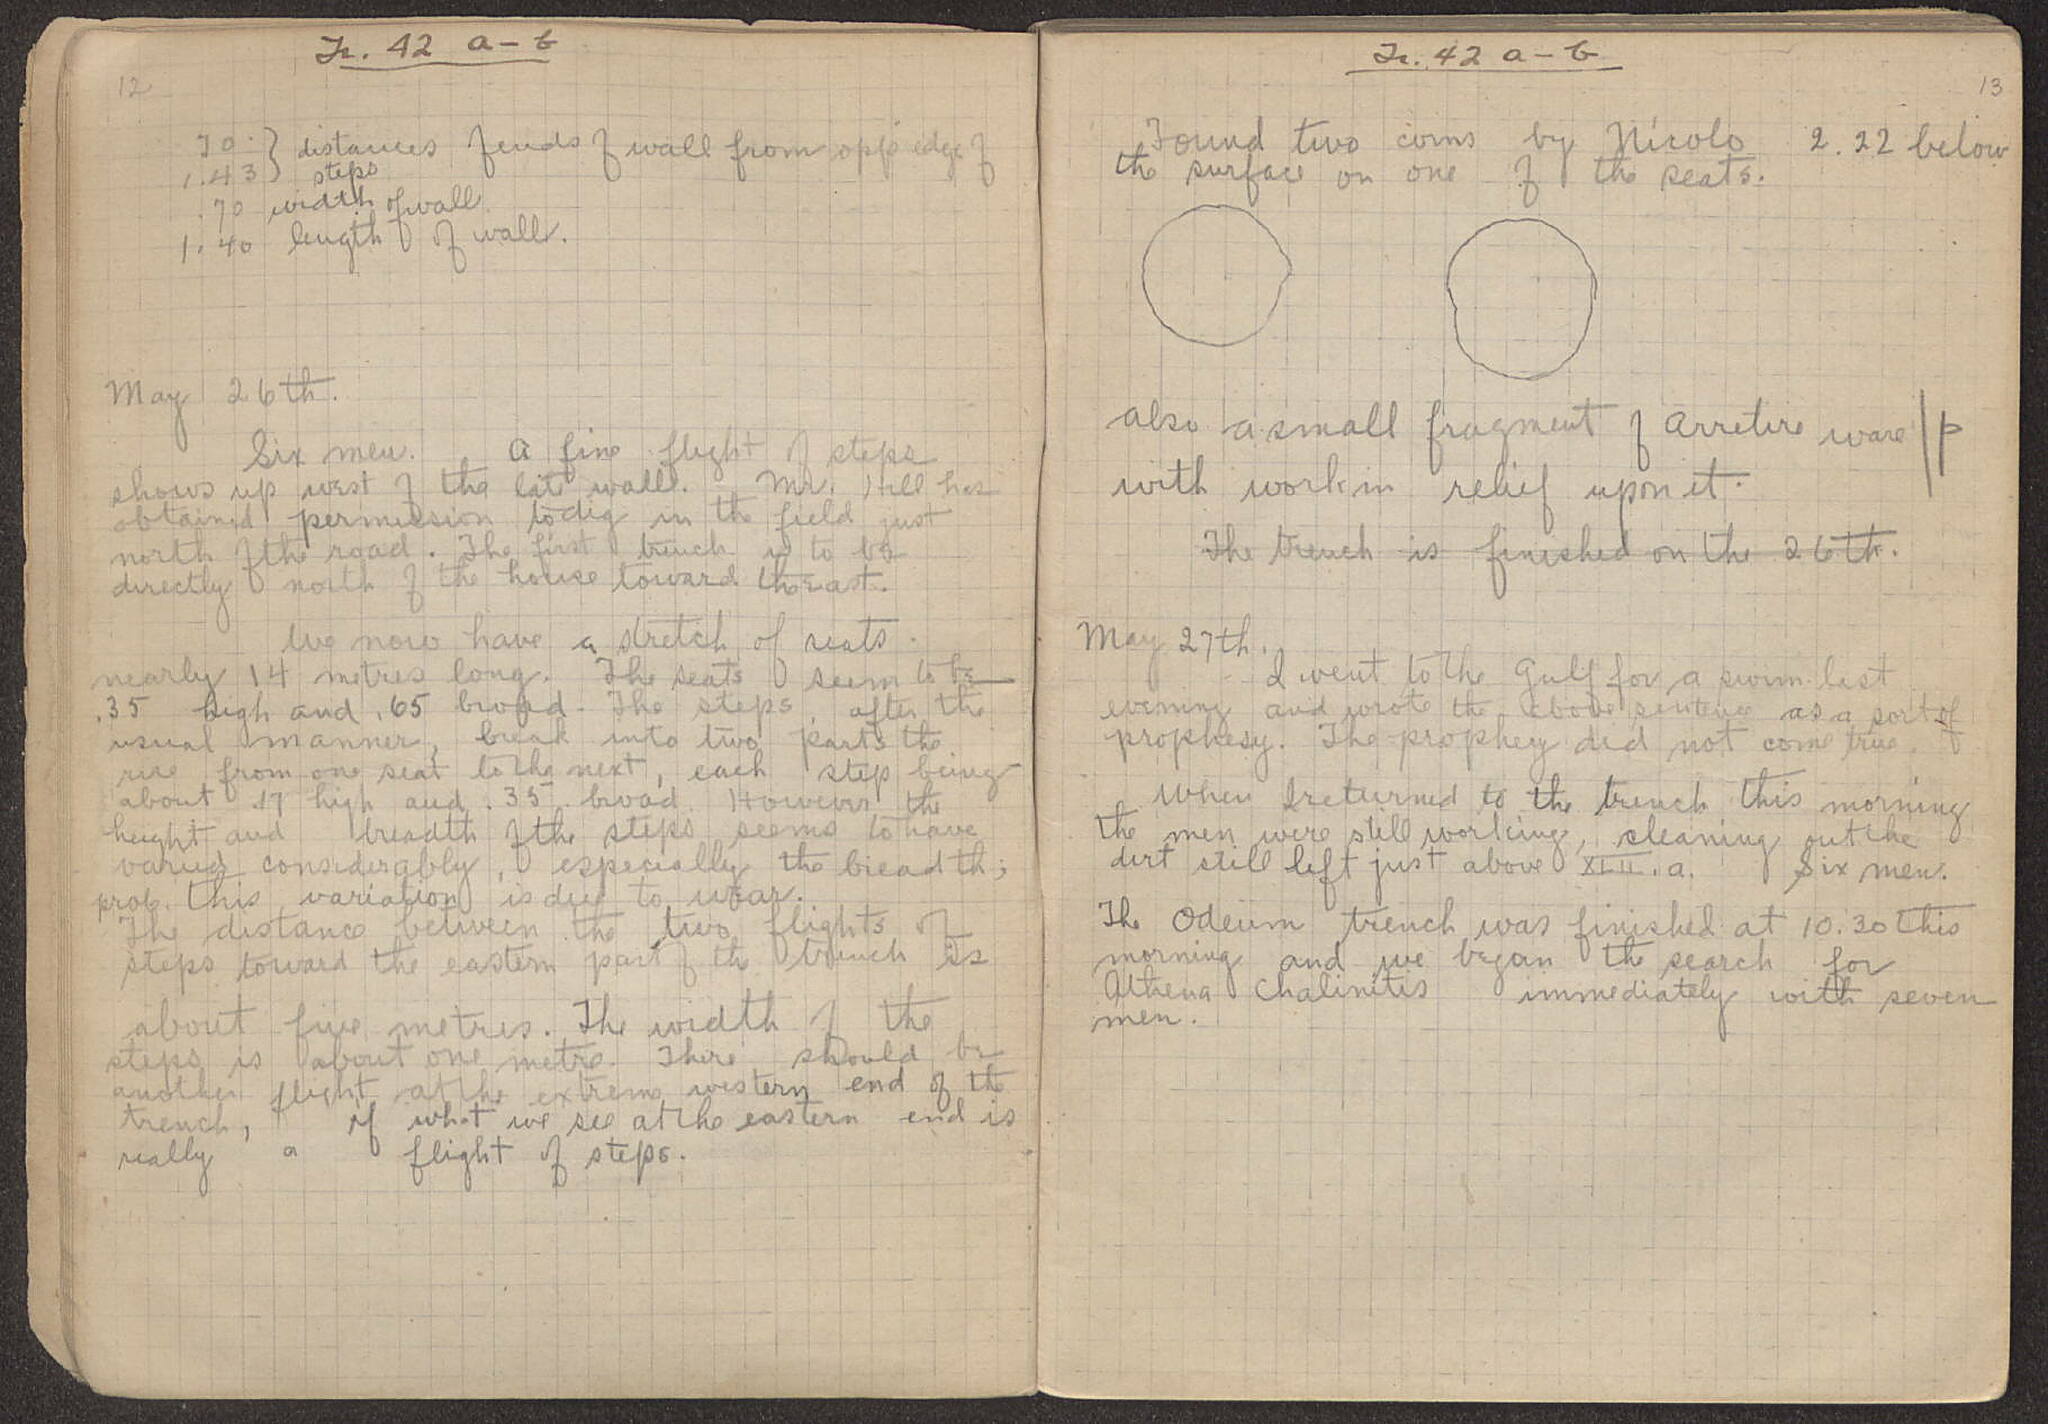 Tr. 42 a-b
12
70 } distances of ends of wall from opp. edge of
1.43 } steps
.70 width of wall
1.40 length of wall.
May 26th.
Six men. A fine flight of steps
shows up west of the late wall. Mr. Hill has
obtained permission to dig in the field just
north of the road. The first trench is to be
directly north of the house toward the east.
We now have a stretch of seats
nearly 14 metres long. The seats seem to be
.35 high and .65 broad. The steps, after the
usual manner, break into two parts the
rise from one seat to the next, each step being
about .17 high and .35 broad. However the
height and breadth of the steps seems to have
varied considerably, especially the breadth;
prob. this variation is due to wear.
The distance between the two flights of
steps toward the eastern part of the trench is
about five metres. The width of the
steps is about one metre. There should be
another flight at the extreme western end of the
trench, if what we see at the eastern end is
really a flight of steps.
Tr. 42 a-b
13
Found two coins by Nicolo 2.22 below
the surface on one of the seats.
also a small fragment of Arretine ware || P
with work in relief upon it.
The trench is finished on the 26th.
May 27th.
I went to the Gulf for a swim last
evening and wrote the above sentence as a sort of
prophesy. The prophey did not come true.
When I returned to the trench this morning
the men were still working, cleaning out the
dirt still left just above XLII.a. Six men.
The Odeum trench was finished at 10.30 this
morning and we began the search for
Athena Chalinitis immediately with seven
men.